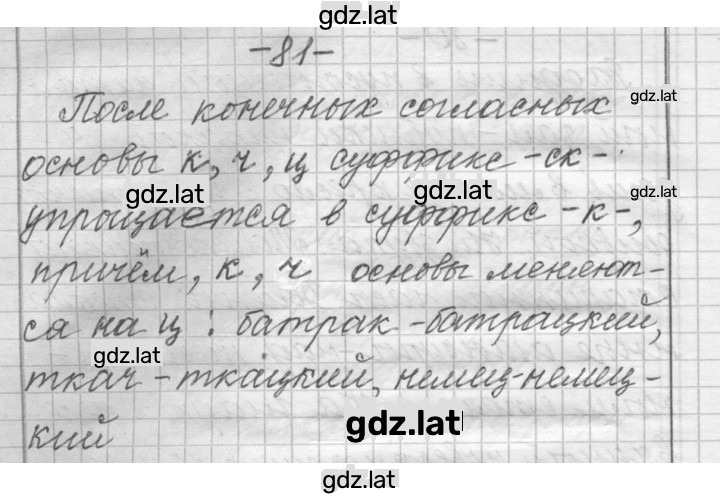 gdz.lat
-81-
После конечных согласных
gdz.lat
основы к, ч, ц суффикс -ск-
gdz.lat gdz.lat gdz.lat
упрощается в суффикс -к-,
причём, к, ч основы меняют-
ся на ц: батрак-батрацкий,
gdz.lat
ткач-ткацкий, немец-немец-
кий
gdz.lat
gdz.lat